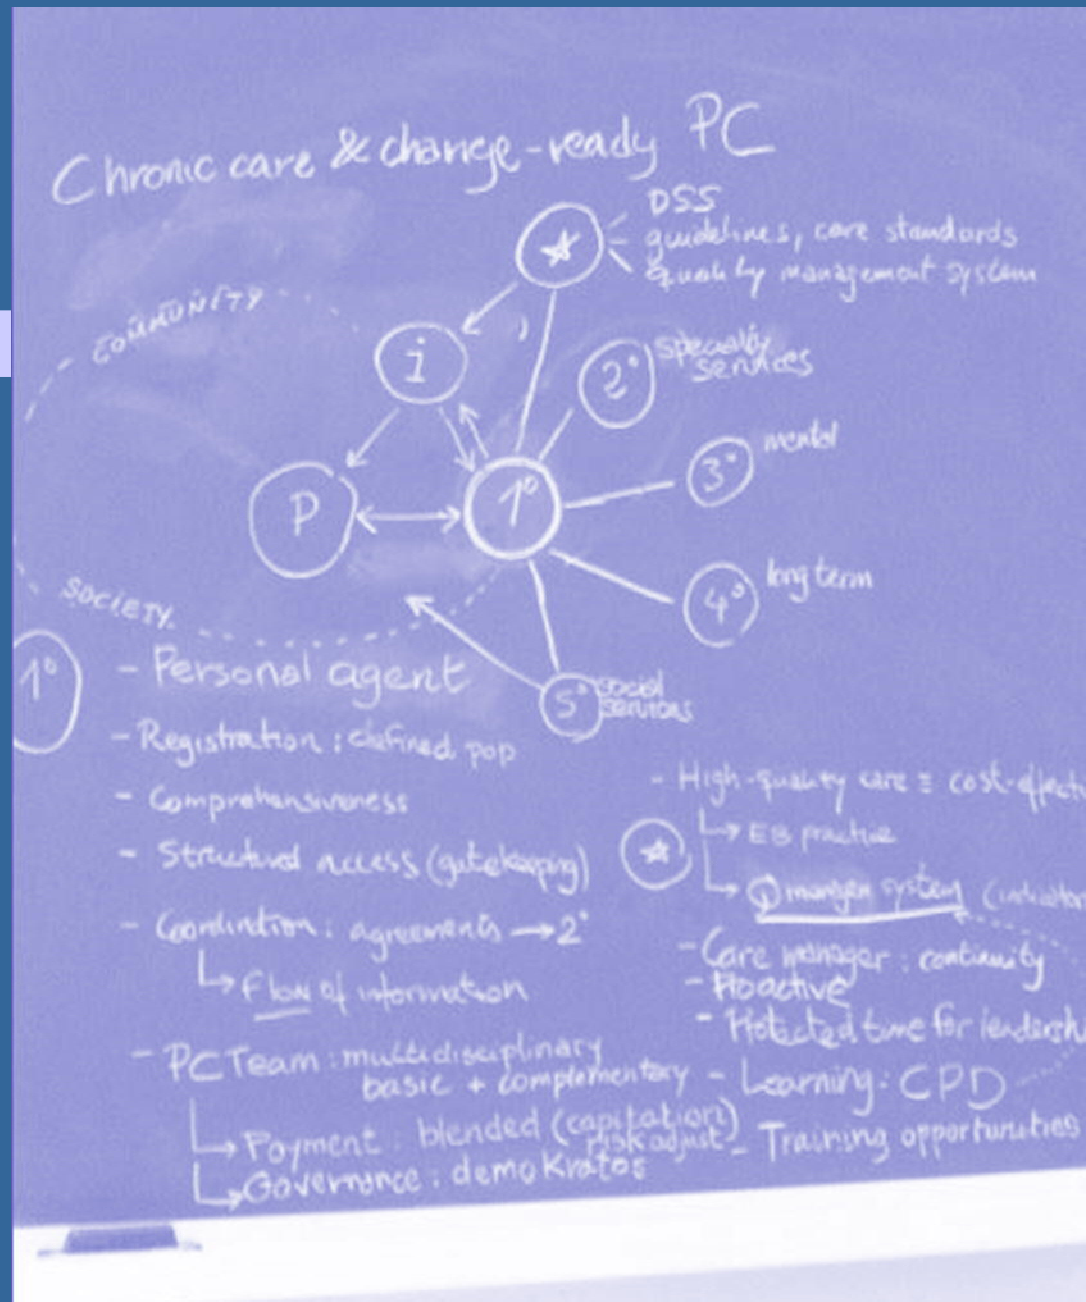 Chronic care & change-ready PC
DSS
guidelines, care standards
quality management system
COMMUNITY
i
2° speciality
services
3° mental
P
1°
4° long term
SOCIETY
5° social
services
1°
- Personal agent
- Registration : defined pop
- Comprehensiveness
- Structured access (gatekeeping)
- Coordination : agreements → 2°
↳ Flow of information
- PC Team : multidisciplinary
basic + complementary
↳ Payment : blended (capitation)
risk adjust
↳ Governance : demokratos
- High-quality care ≡ cost-effecti
↳ EB practice
↳ Q system (indicator
- Care manager : continuity
- Proactive
- Protected time for leadershi
- Learning : CPD
- Training opportunities